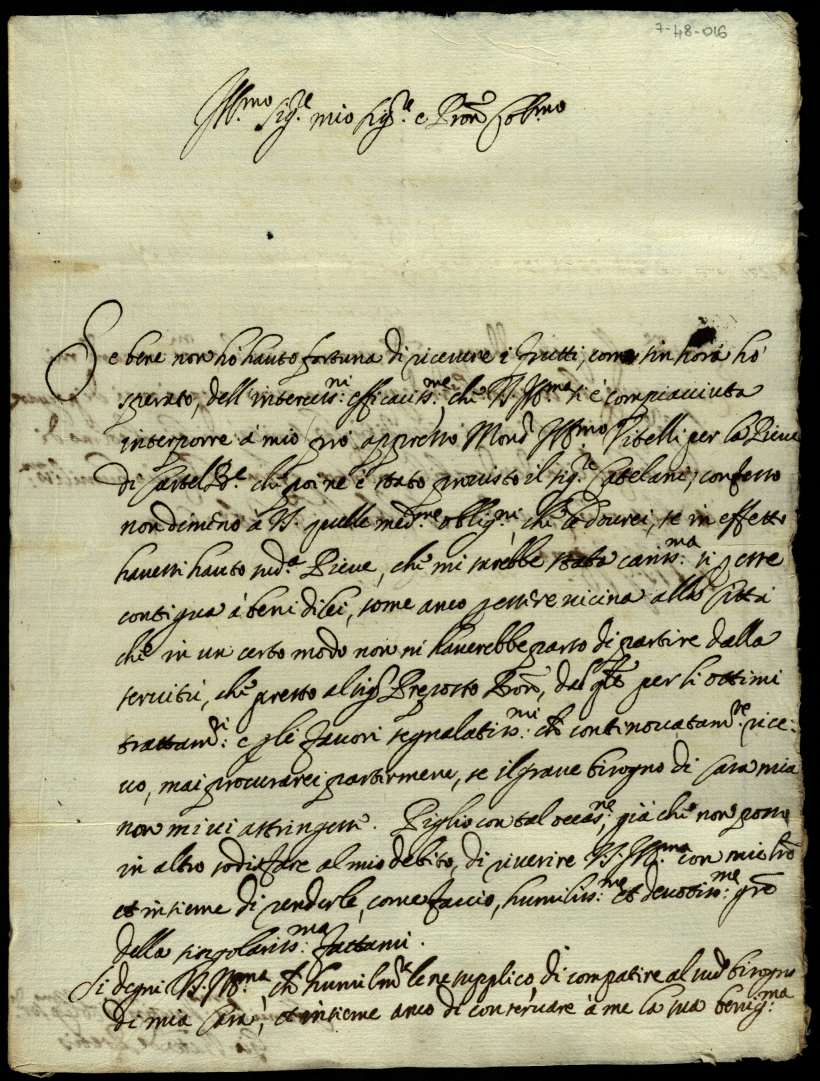 7-48-016
Ill.mo Sig.re mio Sig.re e Pron Col.mo
Se bene non hò hauto fortuna di riceuere i frutti, come sin hora hò
sperato, dell'interces.ni efficacis.me che V.S. Ill.ma si è compiacciuta
interporre à mio prò appresso Mons.r Ill.mo Vitelli per la Pieue
di Castel che poi ne è stato prouisto il sig.re Catelani; confesso
nondimeno à V.S. quelle med.me oblig.ni che le dourei, se in effetto
hauessi hauto sud.a Pieue, che mi sarebbe stata caris.ma sì p esse
contigua à beni di lei, come anco p essere uicina alla Città
che in un certo modo non mi hauerebbe parso di partire dalla
seruitù, che presto al sig.r Preposto Pron, dal q.le per li ottimi
trattam.ti e gli fauori segnalatis.mi ch continouatam.te rice-
uo, mai procurarei partirmene, se il graue bisogno di Casa mia
non mi ci astringessi. Piglio con tal occas.ne, già che non posso
in altro sodisfare al mio debito, di riuerire V.S. Ill.ma con mie l.re
et insieme di renderle, come faccio, humilis.me et deuotis.me gre
della singolaris.ma fattami.
Si degni V.S. Ill.ma ch humilm.te le ne supplico, di compatire al sud.o bisogno
di mia Casa, et insieme anco di conseruare à me la sua benig.ma